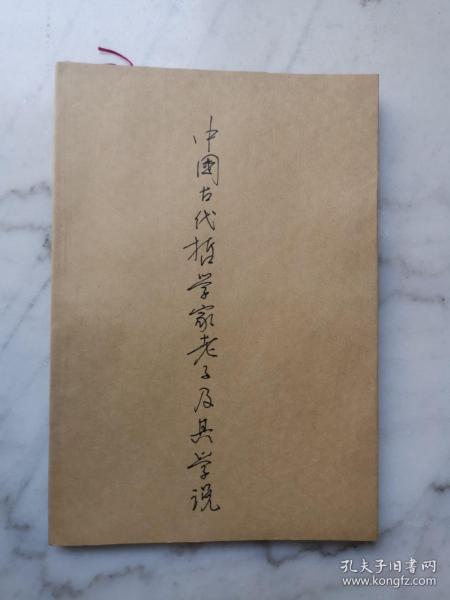 中國古代哲学家老子及其学说
孔夫子旧书网
www.kongfz.com